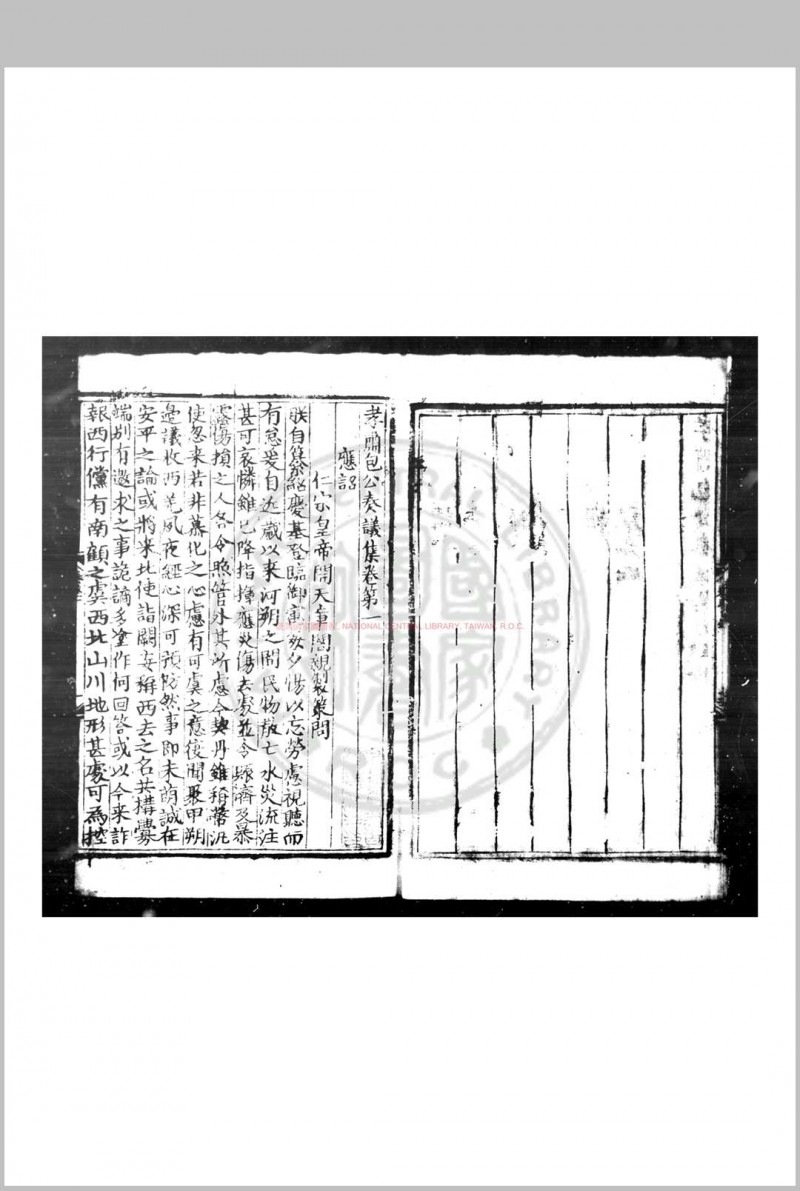 孝肅包公奏議集卷第一
應詔
仁宗皇帝開天章閣親製策問
朕自纂紹慶基登臨御寓夜夕惕以忘勞慮視聽而
有怠爰自近歲以來河朔之間民物散亡水災流注
甚可哀憐雖已降指揮應災傷去處並令賑濟及暴
露傷損之人各令照管外其所慮今契丹雖稍帶汎
使忽來若非慕化之心慮有可虞之意復聞聚甲朔
邊議收西羌夙夜經心深可預防然事即未萌誠在
安平之論或將來北使詣闕妄稱西去之名共搆釁
端别有邀求之事詭論多塗作何回答或以今來詐
報西行儻有南顧之虞西北山川地形甚處可為控
NATIONAL CENTRAL LIBRARY, TAIWAN, R.O.C.